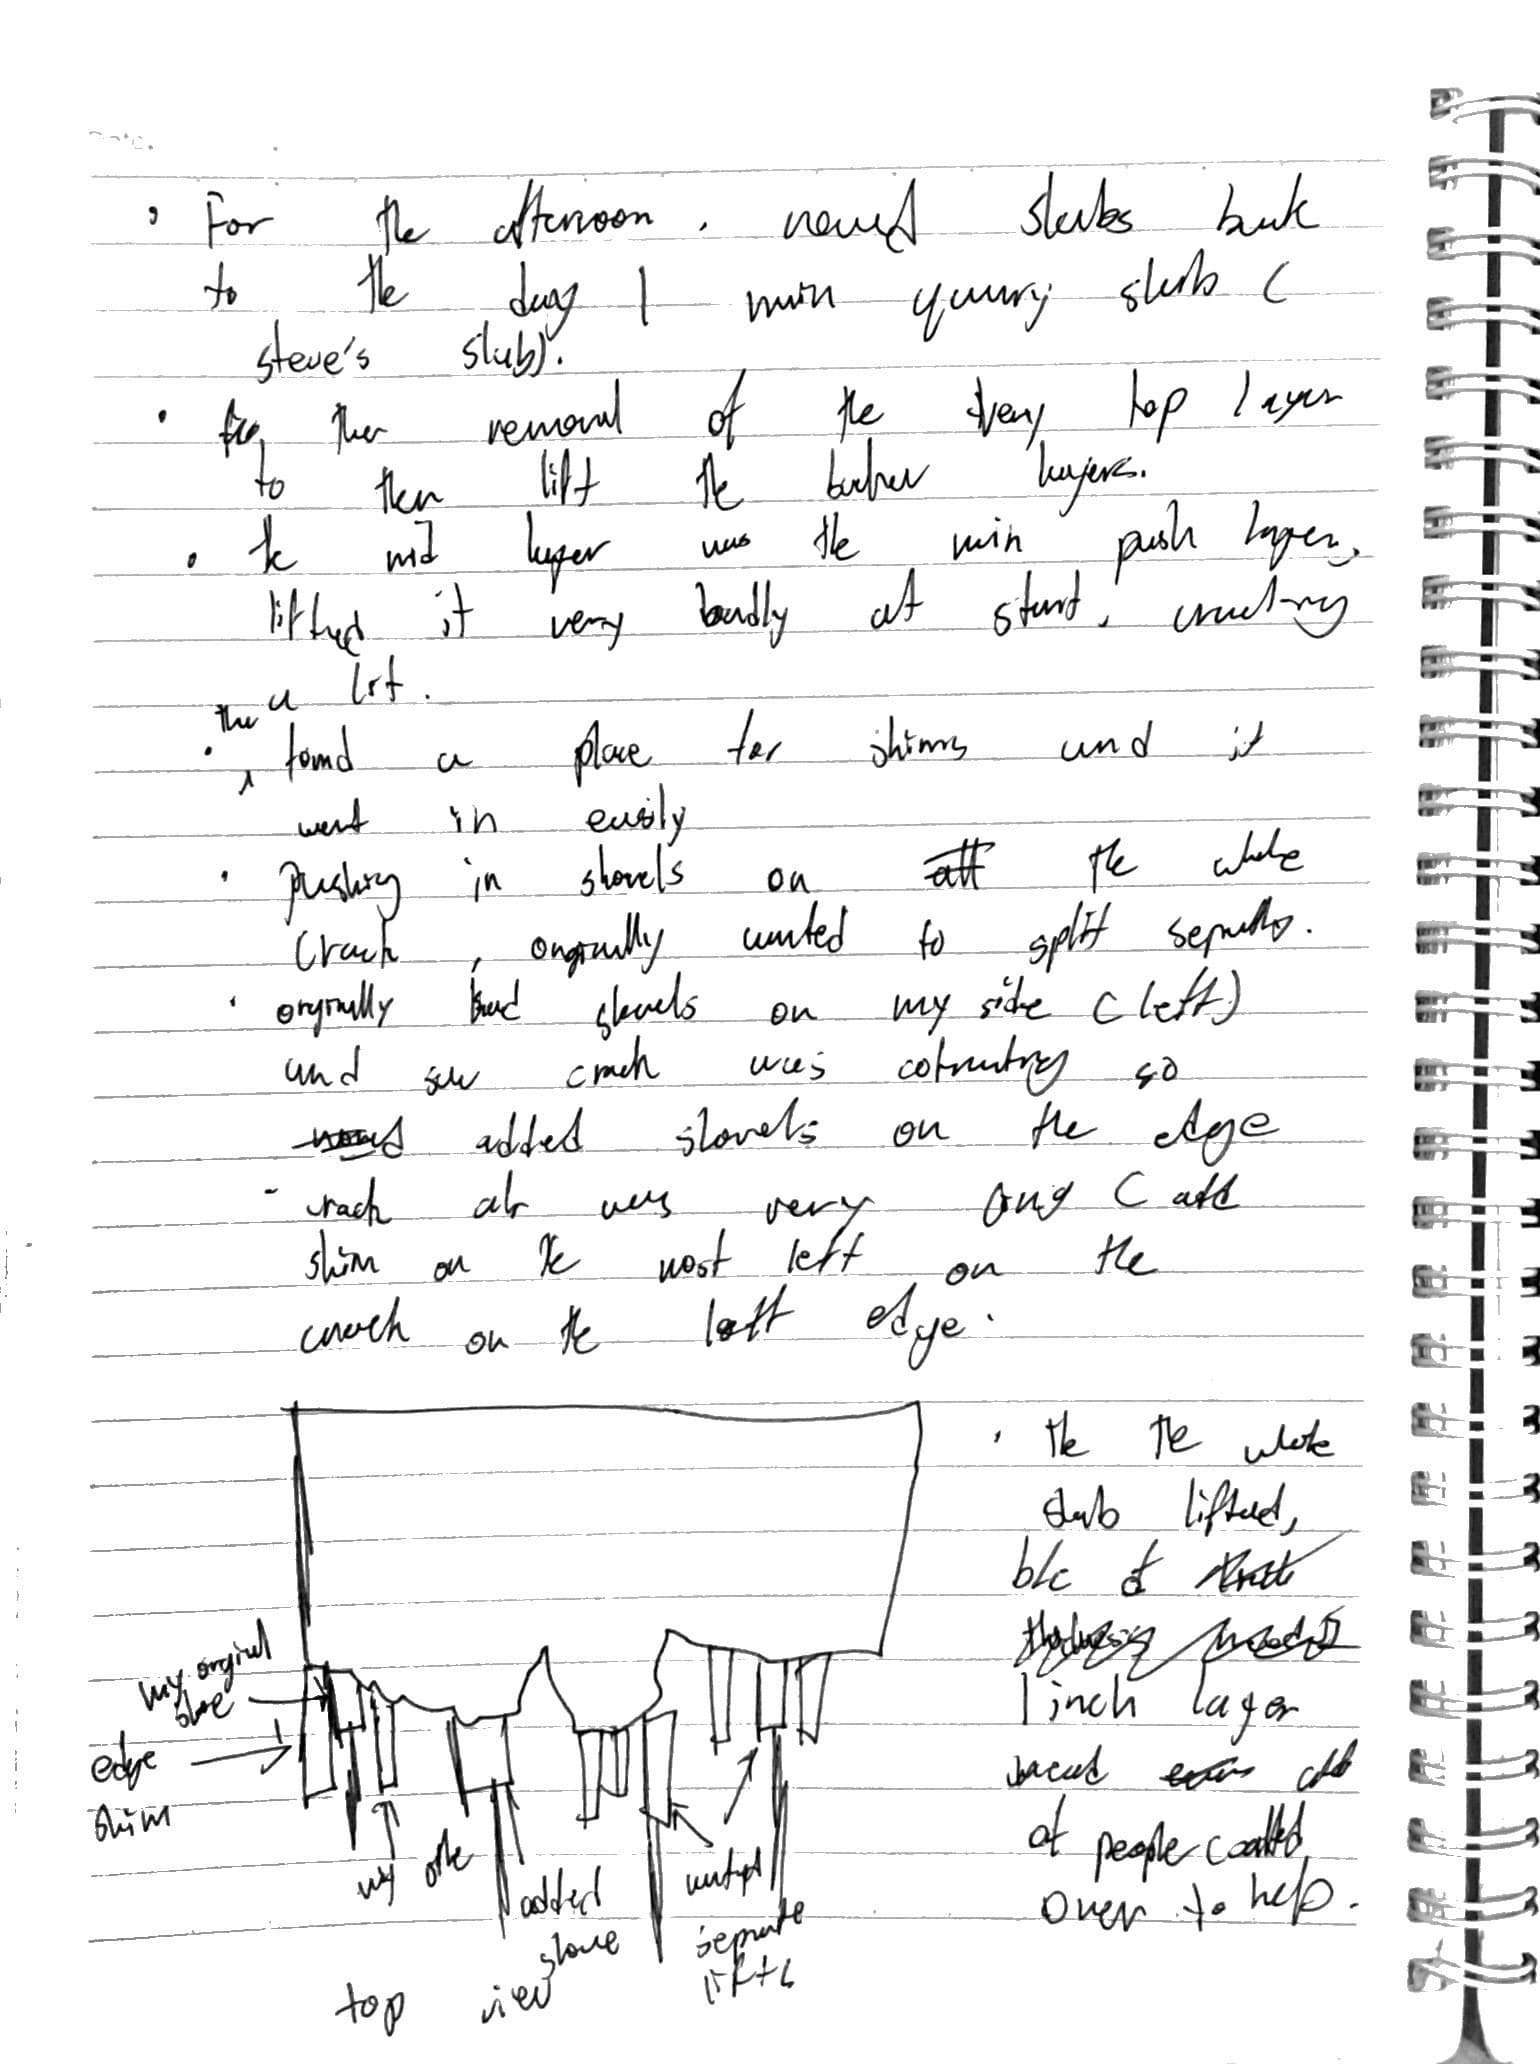 • For the afternoon, moved slabs back
to the day 1 main quarry slab (
steve's slab).
• then removal of the very top layer
to then lift the layers.
• the mid layer was the main push layer,
lifted it very badly at start, cracking
a lot.
• then found a place for shims and it
went in easily
• pushing in shovels on all the whole
crack, originally wanted to split
• orginally had shovels on my side (left)
and saw crack was so
moved added shovels on the edge
- crack was very (add
shim on the most left on the
crack on the left edge.
my orginal
edge
shim
my
added
separate
lifts
top view
• the the whole
slab lifted,
b/c of
1 inch layer
of people called
over to help.